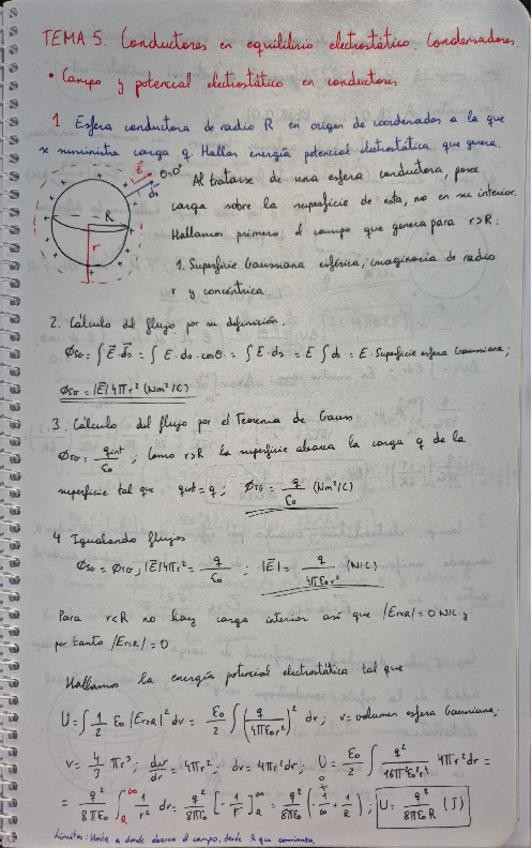 TEMA 5. Conductores en equilibrio electrostático. Condensadores.
• Campo y potencial electrostático en conductores
1 Esfera conductora de radio R en origen de coordenadas a la que
se suministra carga q. Hallar energía potencial electrostática que genera.
E θ=0°
ds
R
r
Al tratarse de una esfera conductora, posee
carga sobre la superficie de esta, no en su interior.
Hallamos primero el campo que genera para r>R:
1. Superficie Gaussiana esférica, imaginaria de radio
r y concéntrica.
2. Cálculo del flujo por su definición.
Øso = ∫ E⃗·ds⃗ = ∫ E·ds·cosθ = ∫ E·ds = E ∫ ds = E·Superficie esfera Gaussiana;
Øso = |E⃗|4πr² (Nm²/C)
3. Cálculo del flujo por el Teorema de Gauss
ØTG = qint/ε₀ ; como r>R la superficie abarca la carga q de la
superficie tal que qint = q ; ØTG = q/ε₀ (Nm²/C)
4 Igualando flujos
Øso = ØTG ; |E⃗|4πr² = q/ε₀ ; |E⃗| = q/4πε₀r² (N/C)
Para r<R no hay carga interior así que |Er<R| = 0 N/C y
por tanto |Er>R| = 0
Hallamos la energía potencial electrostática tal que
U = ∫ 1/2 ε₀ |Er>R|² dv = ε₀/2 ∫ (q/4πε₀r²)² dv ; v = volumen esfera Gaussiana;
v = 4/3 πr³ ; dv/dr = 4πr² ; dv = 4πr²dr ; U = ε₀/2 ∫ q²/16π²ε₀²r⁴ 4πr²dr =
= q²/8πε₀ ∫R∞ 1/r² dr = q²/8πε₀ [-1/r]R∞ = q²/8πε₀ (-1/∞ + 1/R) ; U = q²/8πε₀R (J)
Límites: Hasta a donde abarca el campo, desde R que comienza.